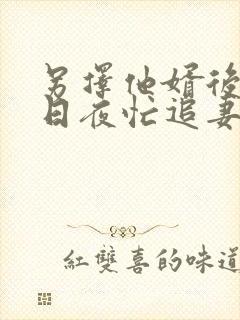 另擇他婿後
日夜忙追妻
紅雙喜的味道